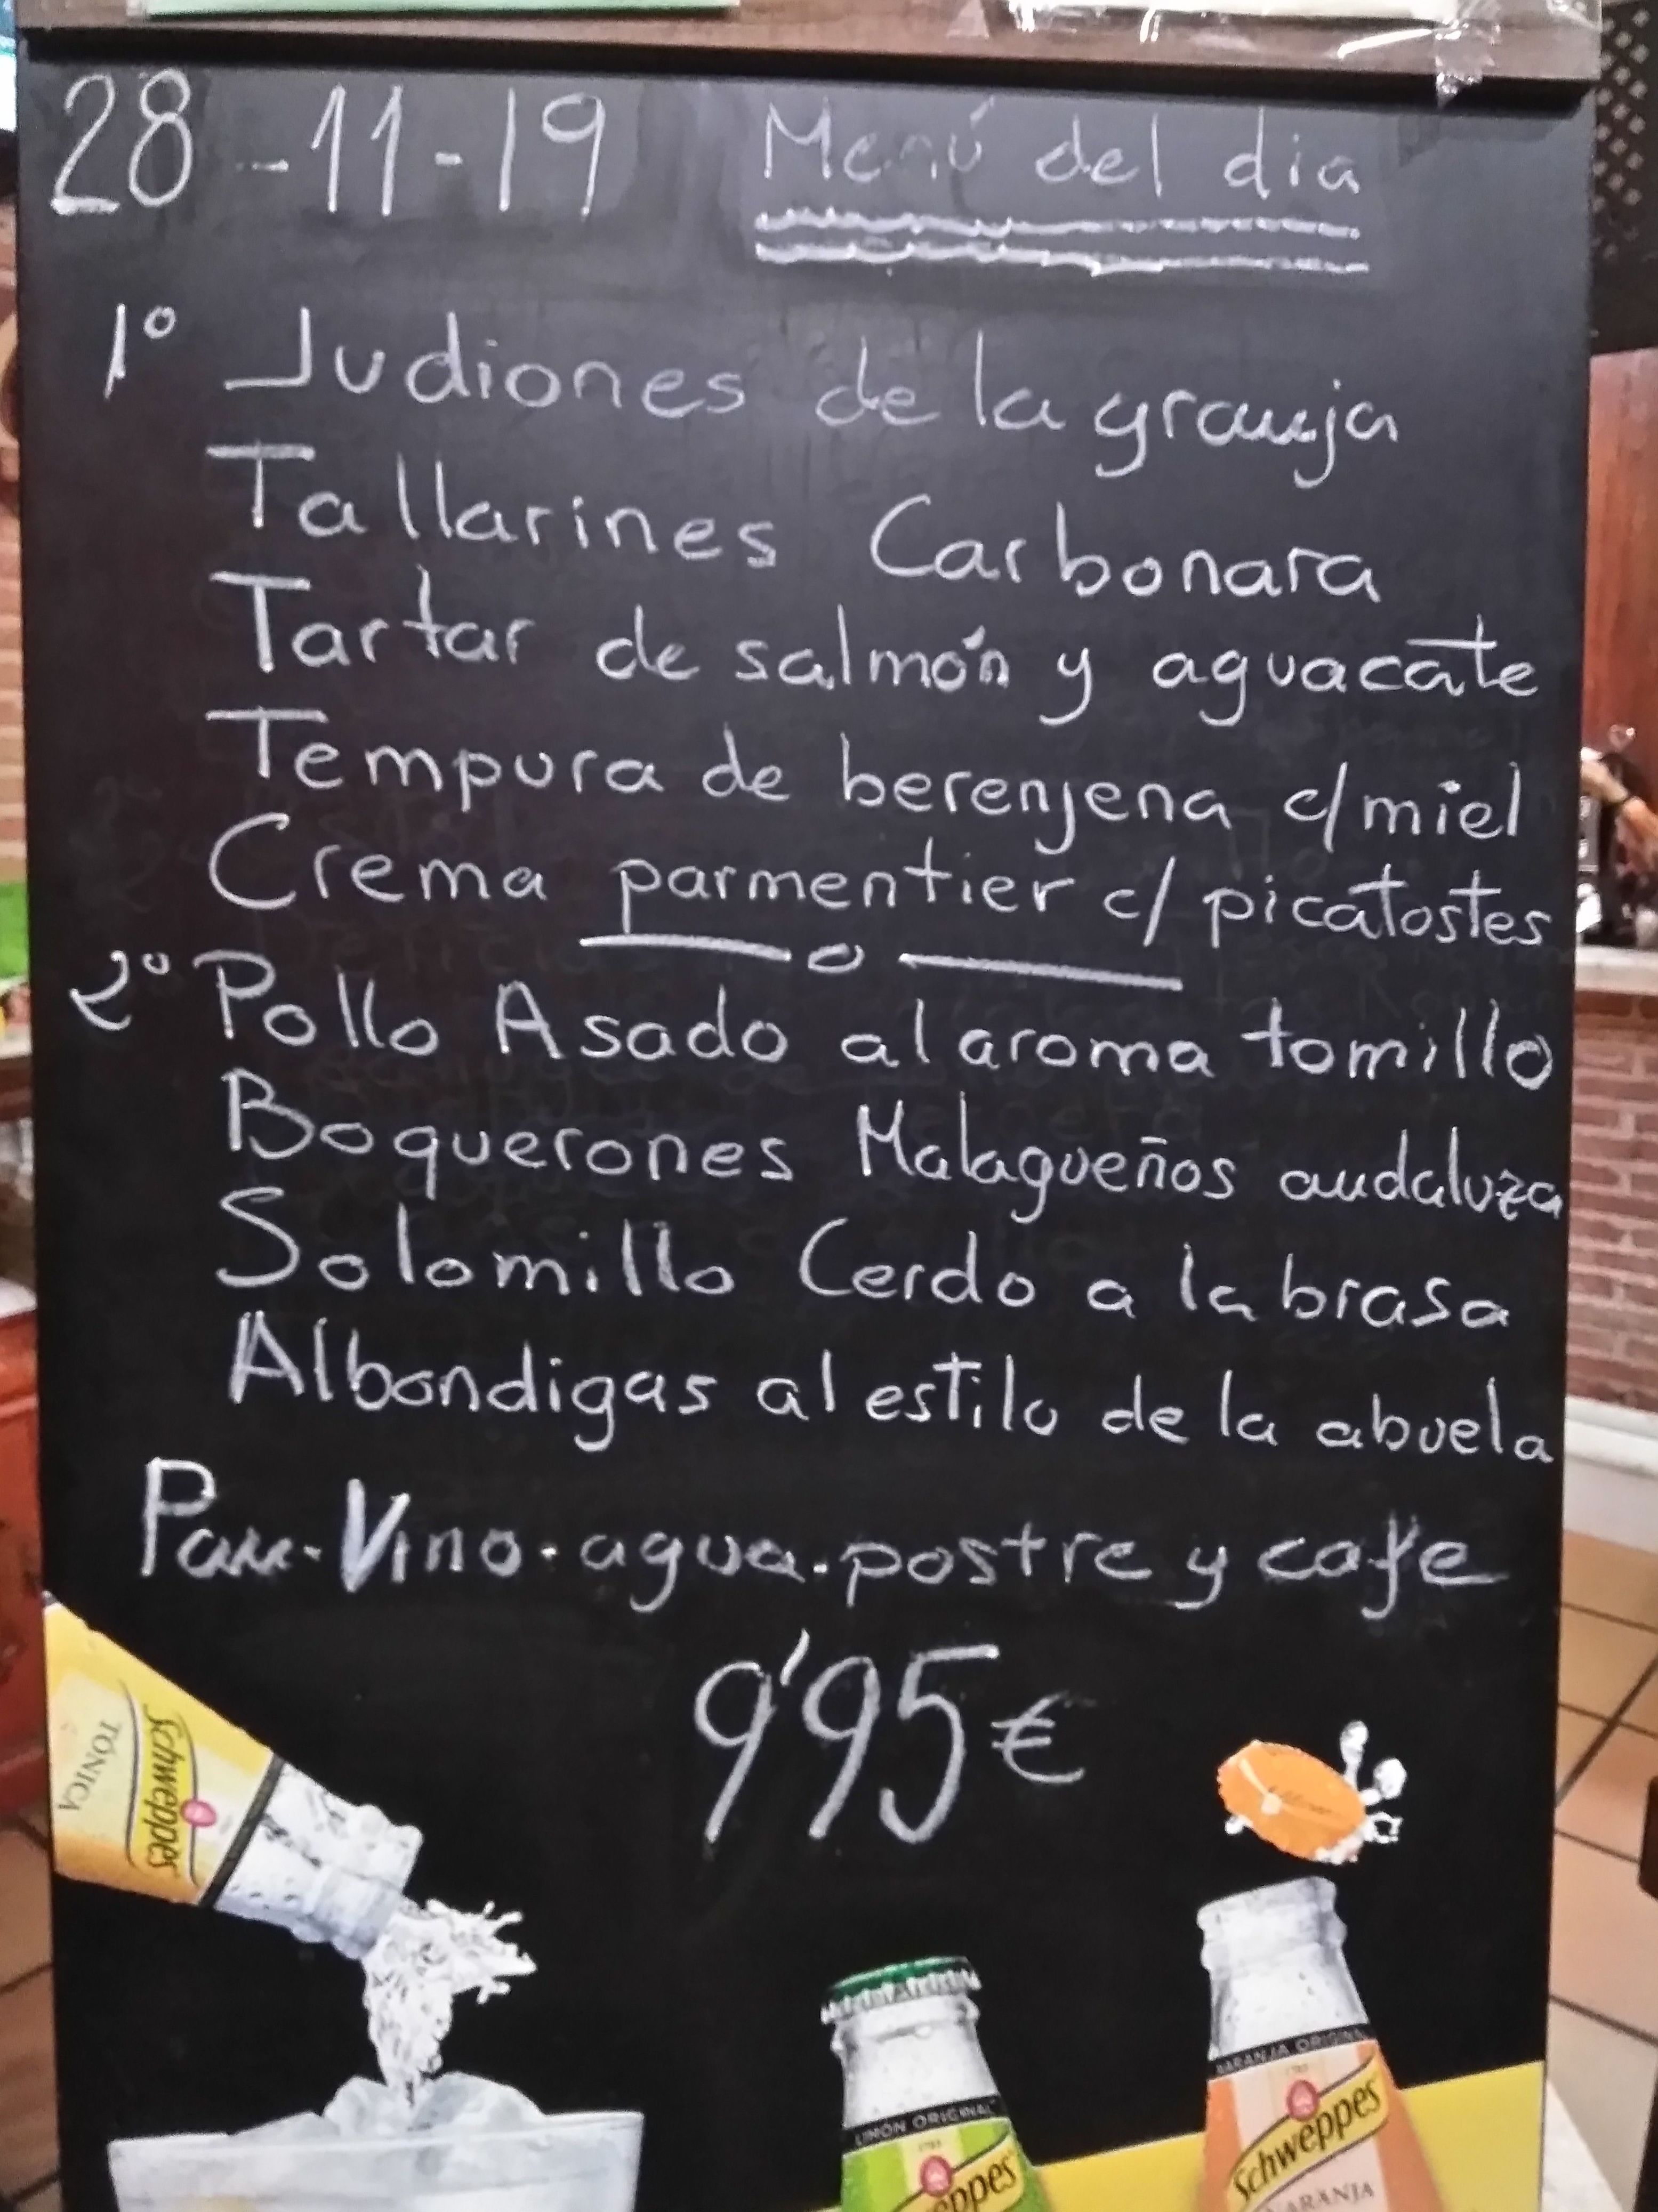 28-11-19 Menú del dia
1º Judiones de la granja
Tallarines Carbonara
Tartar de salmón y aguacate
Tempura de berenjena c/miel
Crema parmentier c/ picatostes
2º Pollo Asado al aroma tomillo
Boquerones Malagueños andaluza
Solomillo Cerdo a la brasa
Albondigas al estilo de la abuela
Pan. Vino. agua. postre y cafe
9'95€
Schweppes
TÓNICA
LIMÓN ORIGINAL
1783
eppes
NARANJA ORIGINAL
1783
Schweppes
NARANJA